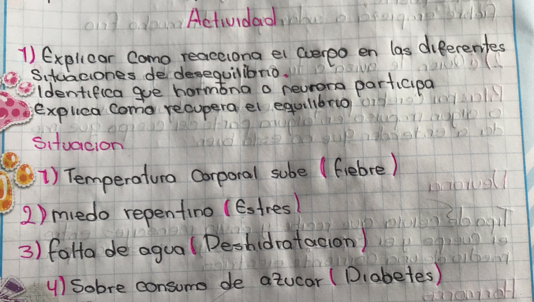 Actividad
1) Explicar como reacciona el cuerpo en las diferentes
situaciones de desequilibrio.
Identifica que hormona o neurona participa
explica como recupera el equilibrio
Situacion
1) Temperatura corporal sube (fiebre)
2) miedo repentino (Estres)
3) falta de agua (Deshidratacion)
4) Sobre consumo de azucar (Diabetes)